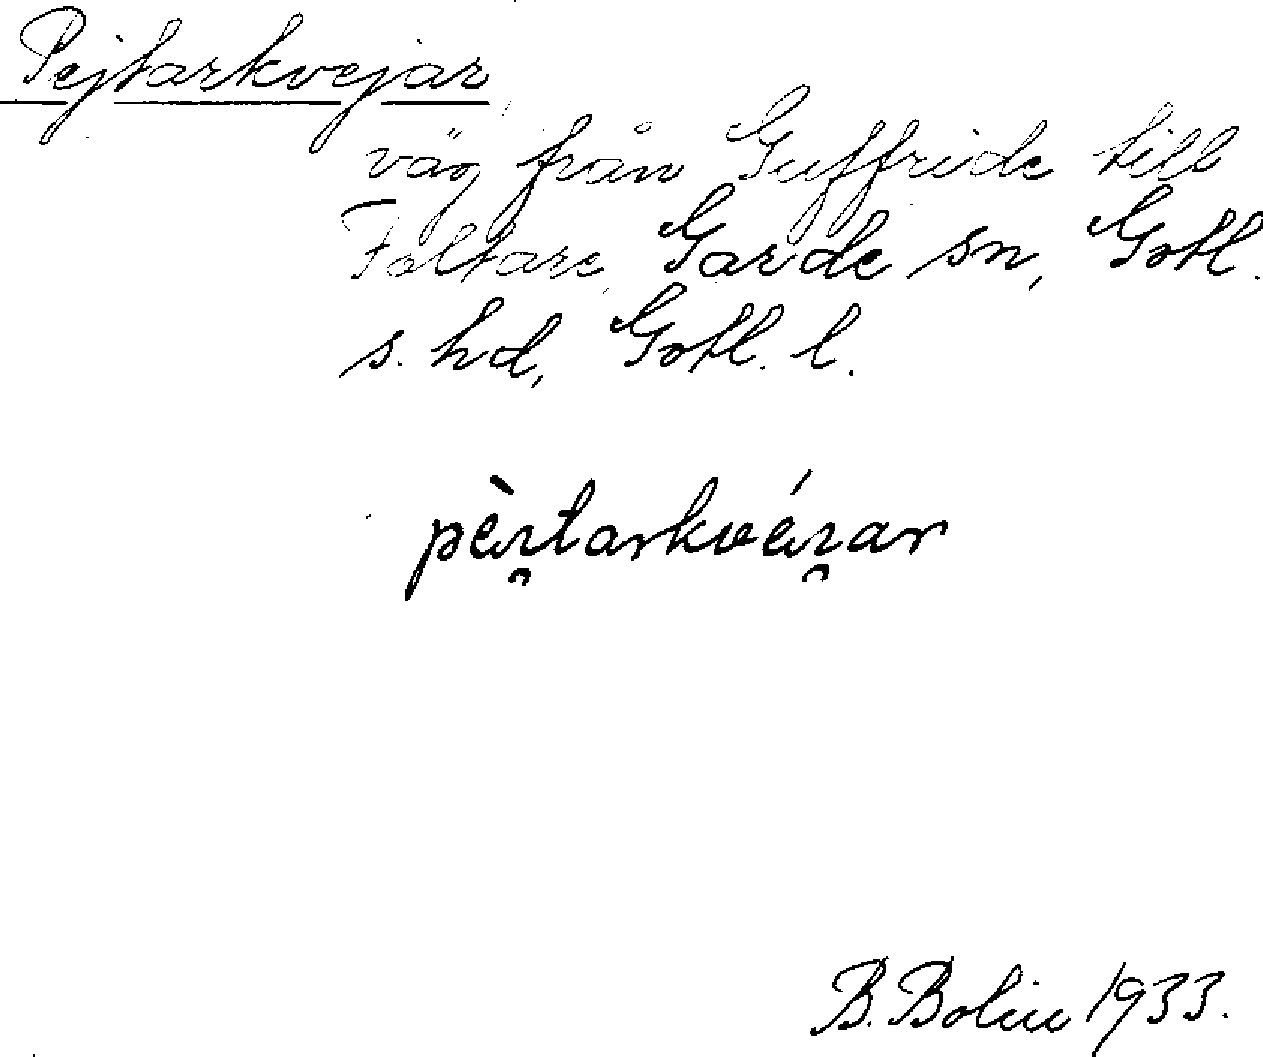 Pejtarkvejar
väg från Guffride till
Foltare, Garde sn, Gotl.
s. hd, Gotl. l.
B. Bolin 1933.